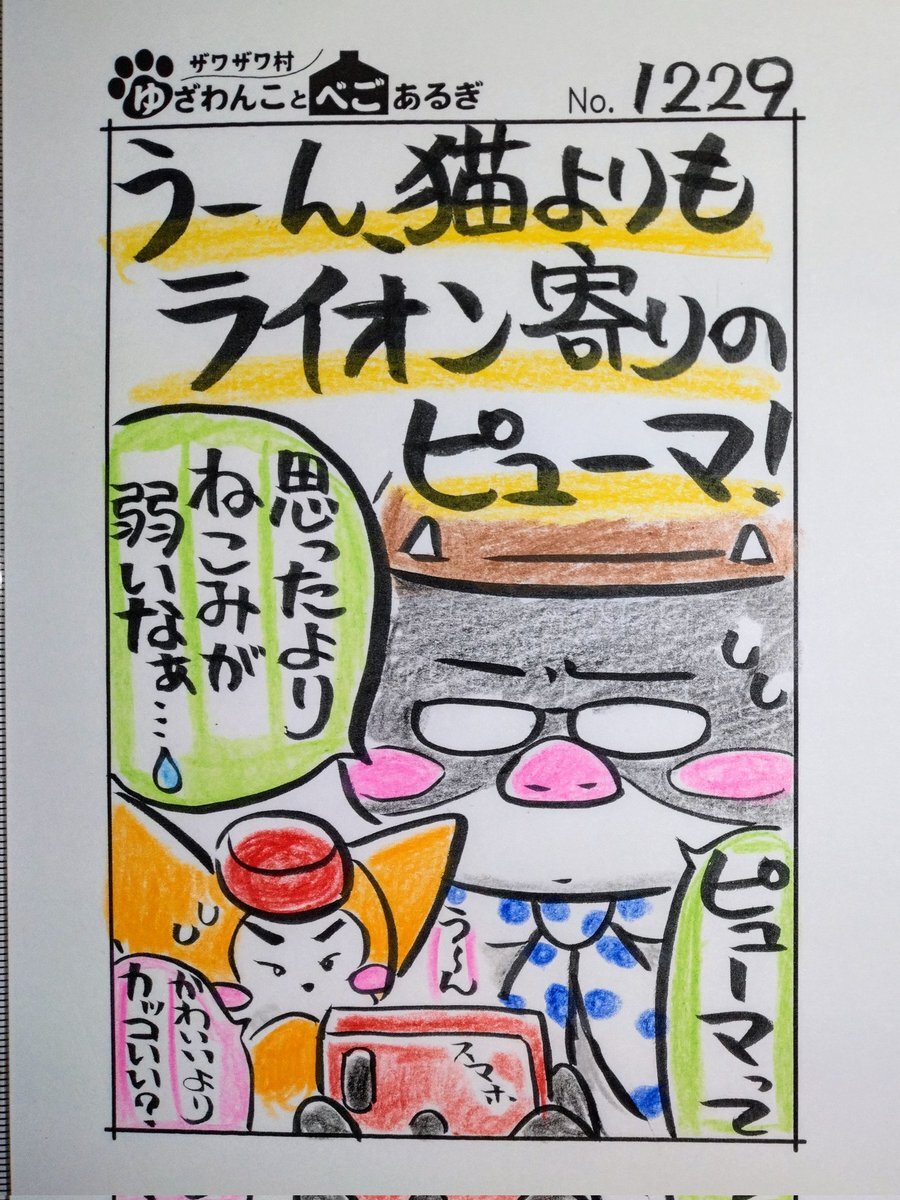 ザワザワ村
ゆざわんことべごあるぎ
No. 1229
うーん、猫よりも
ライオン寄りの
ピューマ!
ピューマって
思ったより
ねこみが
弱いなぁ…
う〜ん
かわいいより
カッコいい?
スマホ